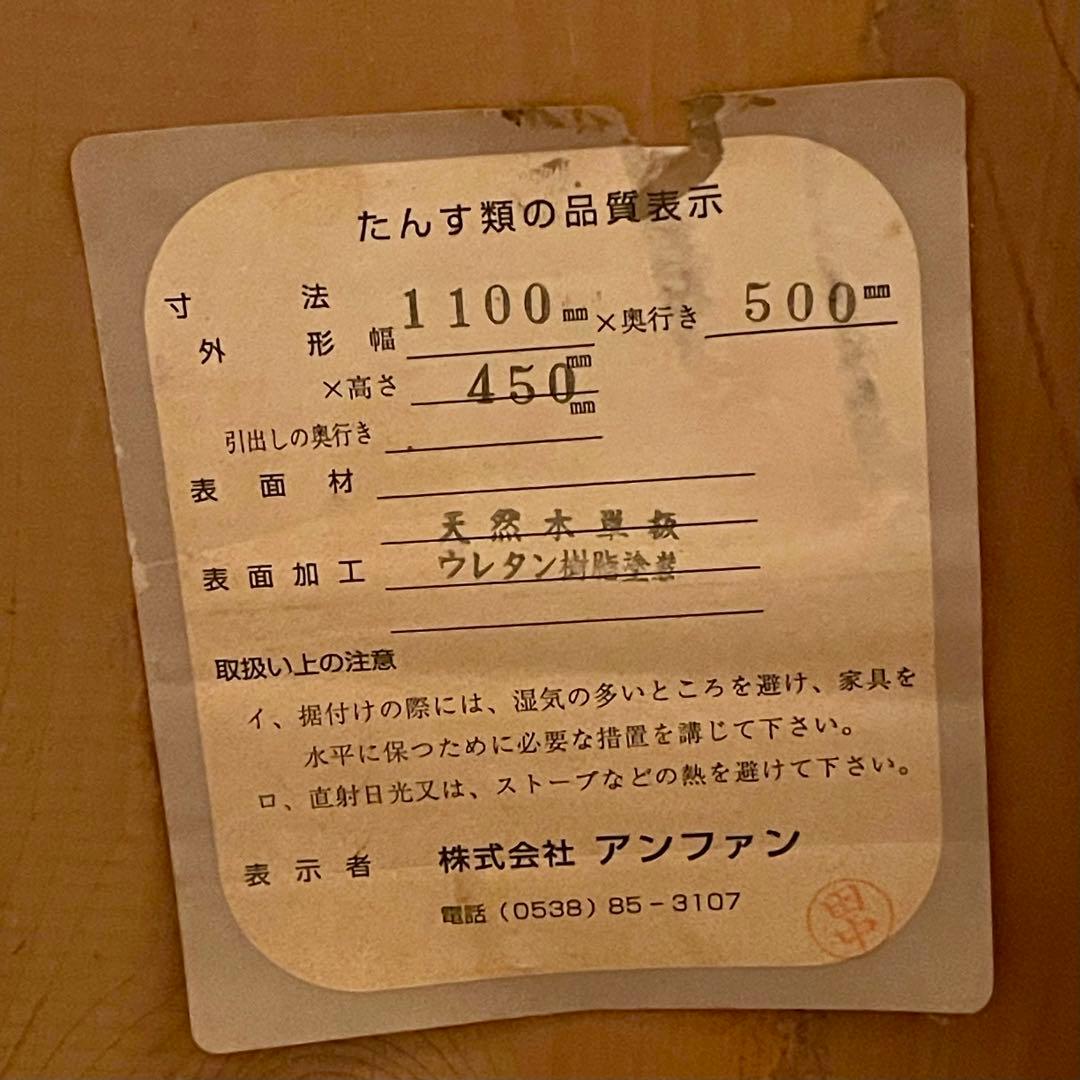 たんす類の品質表示
寸法
外形 幅 1100mm ×奥行き 500mm
×高さ 450mm
引出しの奥行き mm
表面材
天然木単板
表面加工 ウレタン樹脂塗装
取扱い上の注意
イ、据付けの際には、湿気の多いところを避け、家具を
水平に保つために必要な措置を講じて下さい。
ロ、直射日光又は、ストーブなどの熱を避けて下さい。
表示者 株式会社 アンファン
電話(0538)85-3107
田中